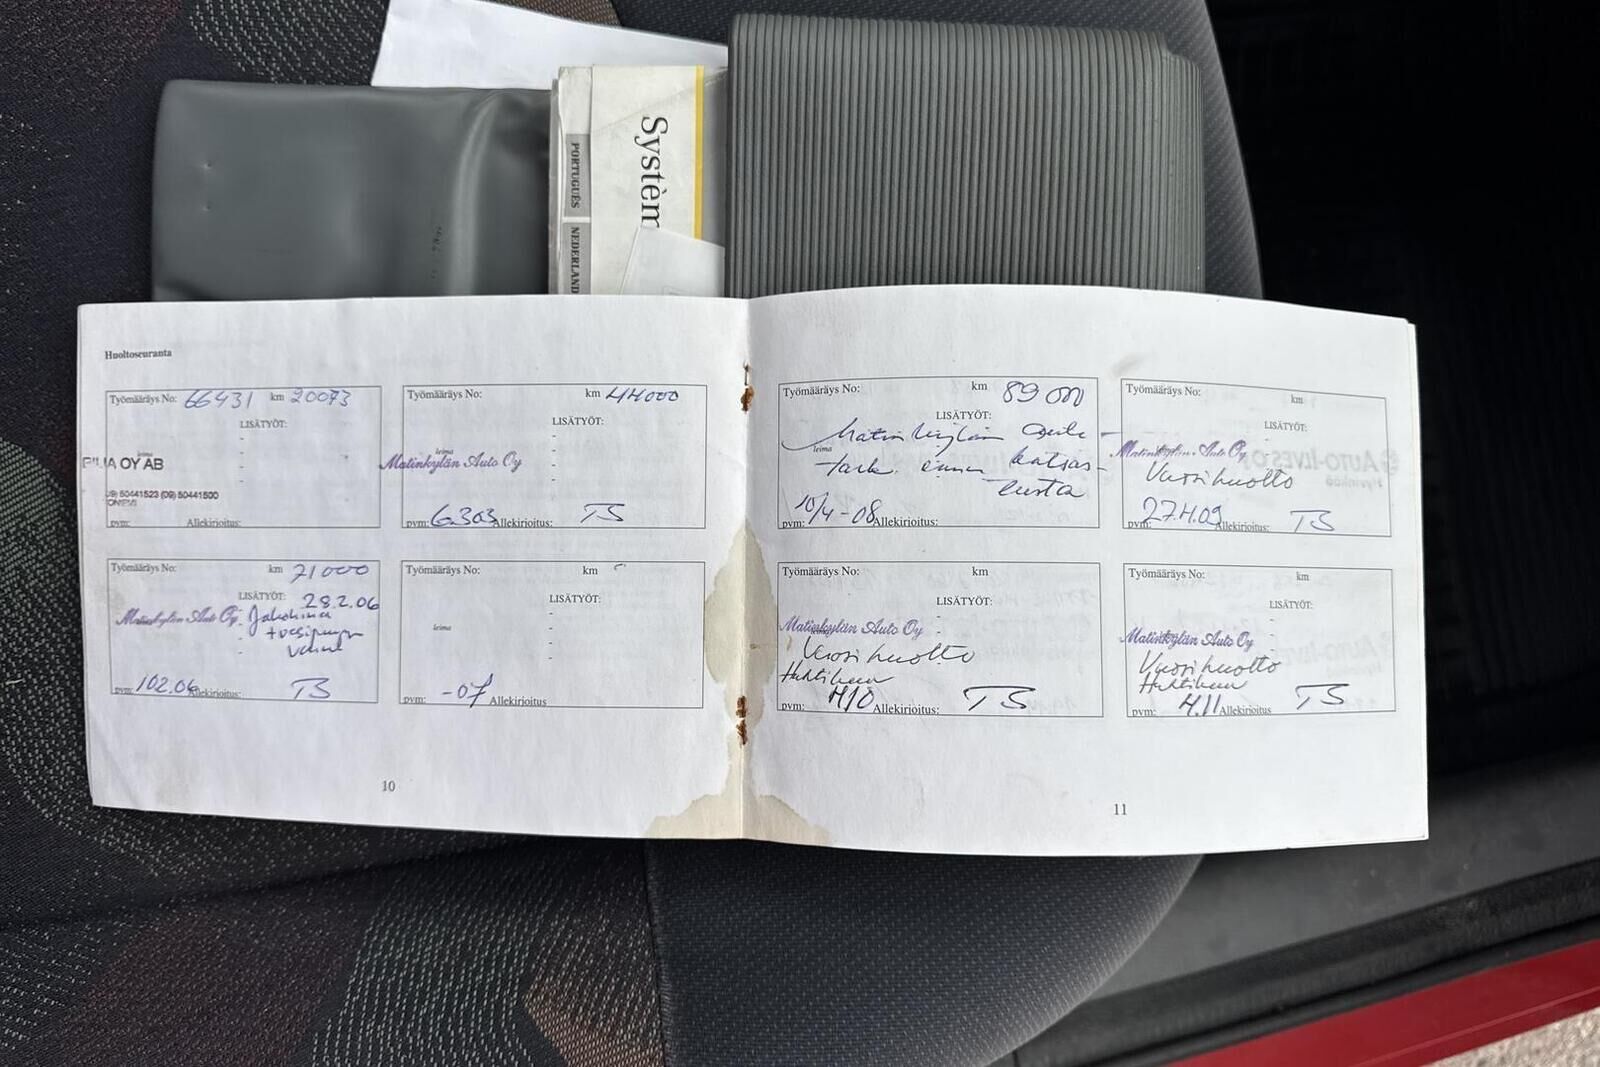 Systèm
PORTUGUÊS
NEDERLAND
Huoltoseuranta
Työmääräys No: 66431 km 20073
LISÄTYÖT:
leima
OY AB
(09) 50441523 (09) 50441500
pvm: Allekirjoitus:
Työmääräys No: km 44000
LISÄTYÖT:
leima
Matinkylän Auto Oy
pvm: 6.3.03 Allekirjoitus: TS
Työmääräys No: km 71000
LISÄTYÖT: 28.2.06
Matinkylän Auto Oy Jakohihna
+ vesipumpun
pvm: Allekirjoitus: TS
Työmääräys No: km
LISÄTYÖT:
leima
pvm: -07 Allekirjoitus
10
Työmääräys No: km 89000
LISÄTYÖT:
Matinkylän
leima
tark. ennen katsas-
tusta
pvm: 10/4-08 Allekirjoitus:
Työmääräys No: km
LISÄTYÖT:
Matinkylän Auto Oy
Vuosihuolto
pvm: 27.4.09 Allekirjoitus: TS
AUTO-ILVES OY
Hyvinkää
Työmääräys No: km
LISÄTYÖT:
Matinkylän Auto Oy
Vuosihuolto
Huhtikuu
pvm: 4.10 Allekirjoitus: TS
Työmääräys No: km
LISÄTYÖT:
Matinkylän Auto Oy
Vuosihuolto
Huhtikuu
pvm: 4.11 Allekirjoitus TS
11